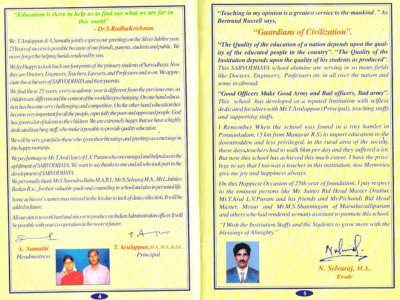 "Education is there to help us to find out what we are far in
this world"
- Dr.S.Radhakrishnan.
We, T.Arulappan & A.Sumathi jointly express our greetings on the Silver Jubilee year.
25 Years of success is possible because of our friends, parents, students and public. We
never forget the helping hands rendered by you.
We feel happy to look back our footprints of the primary students of Sarvodhaya. Now
they are Doctors, Engineers, Teachers, Lawyers, and Professors and so on. We appre-
ciate the achievers of SARVODHAYA and their parents.
We find these 25 years, every academic year is different from the previous one, as
children are different and the context of the world keeps changing. On one hand educa-
tion has become very challenging and competitive. On the other hand education has
become very important for all the people, especially the poor and oppressed people. God
has given a lot of talents to the children. We are extremely happy that we have a highly
dedicated teaching staff, who make it possible to provide quality education.
We will be very grateful to those who give their blessing and greetings as a message in
the happy moments.
ment of SARVODHAYA.
Some achiever's names may missed in the list due to lack of data collection. It will be
added in future.
All our aim is to work hard and sincere to produce an Indian Administration officer. It will
be possible with your co-operation in the nearest future.
A. Sumathi
Headmistress
T. Arulappan, M.A., M.A., B.Ed.,
Principal
4
"Teaching in my opinion is a greatest service to the mankind." As
Bertrand Russell says,
"Guardians of Civilization".
"The Quality of the education of a nation depends upon the qual-
ity of the educated people in the country". "The Quality of the
Institution depends upon the quality of his students at produced".
This SARVODHAYA school alumni are serving in so many fields
like Doctors, Engineers, Professors etc in all over the nation and
some in abroad.
"Good Officers Make Good Army and Bad officers, Bad army".
This school has developed as a reputed Institution with selfless
dedicated faculties with Mr.T.Arulappan (Principal), teaching staffs
and supporting staffs.
I Remember When the school was found in a tiny hamlet in
Ponnankulam, (3 km from Manavur R.S) to impart education to the
downtrodden and less privileged, in the rural area of the society,
those days,teachers had to walk 6km per day and they suffered a lot.
But now this school has achieved this much extent. I have the privi-
lege to say that I too was a teacher in this institution, thou Memories
give me joy and happiness always.
On this Happiest Occasion of 25th year of foundation, I pay respect
to the eminent persons like Mr. James Raj Head Master (Oratur,
Mr.T.Arul L.V.Puram and his friends and Mr.Pichandi Rtd Head
Master, Mosur and Mr.M.S.Shanmugam of Maruthavallipuram
and others who had rendered so many assistant to promote this school.
"I Wish the Institution Staffs and the Students to grow more with the
blessings of Almighty."
N. Selvaraj, M.A.,
Erode
5